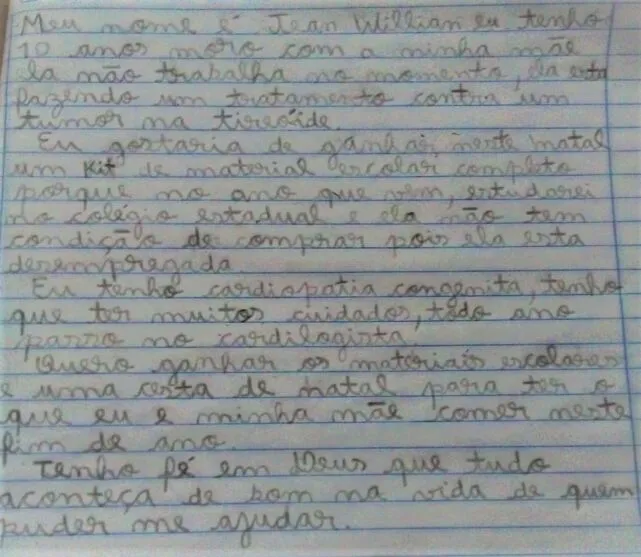 Meu nome é Jean Willian eu tenho
10 anos moro com a minha mãe
ela não trabalha no momento, ela esta
fazendo um tratamento contra um
tumor na tireóide.
Eu gostaria de ganhar, neste natal
um kit de material escolar completo
porque no ano que vem, estudarei
no colégio estadual e ela não tem
condição de comprar pois ela esta
desempregada.
Eu tenho cardiopatia congenita, tenho
que ter muitos cuidados, todo ano
passo no cardilogista.
Quero ganhar os materiais escolares
e uma cesta de natal para ter o
que eu e minha mãe comer neste
fim de ano.
Tenho fé em Deus que tudo
aconteça de bom na vida de quem
puder me ajudar.